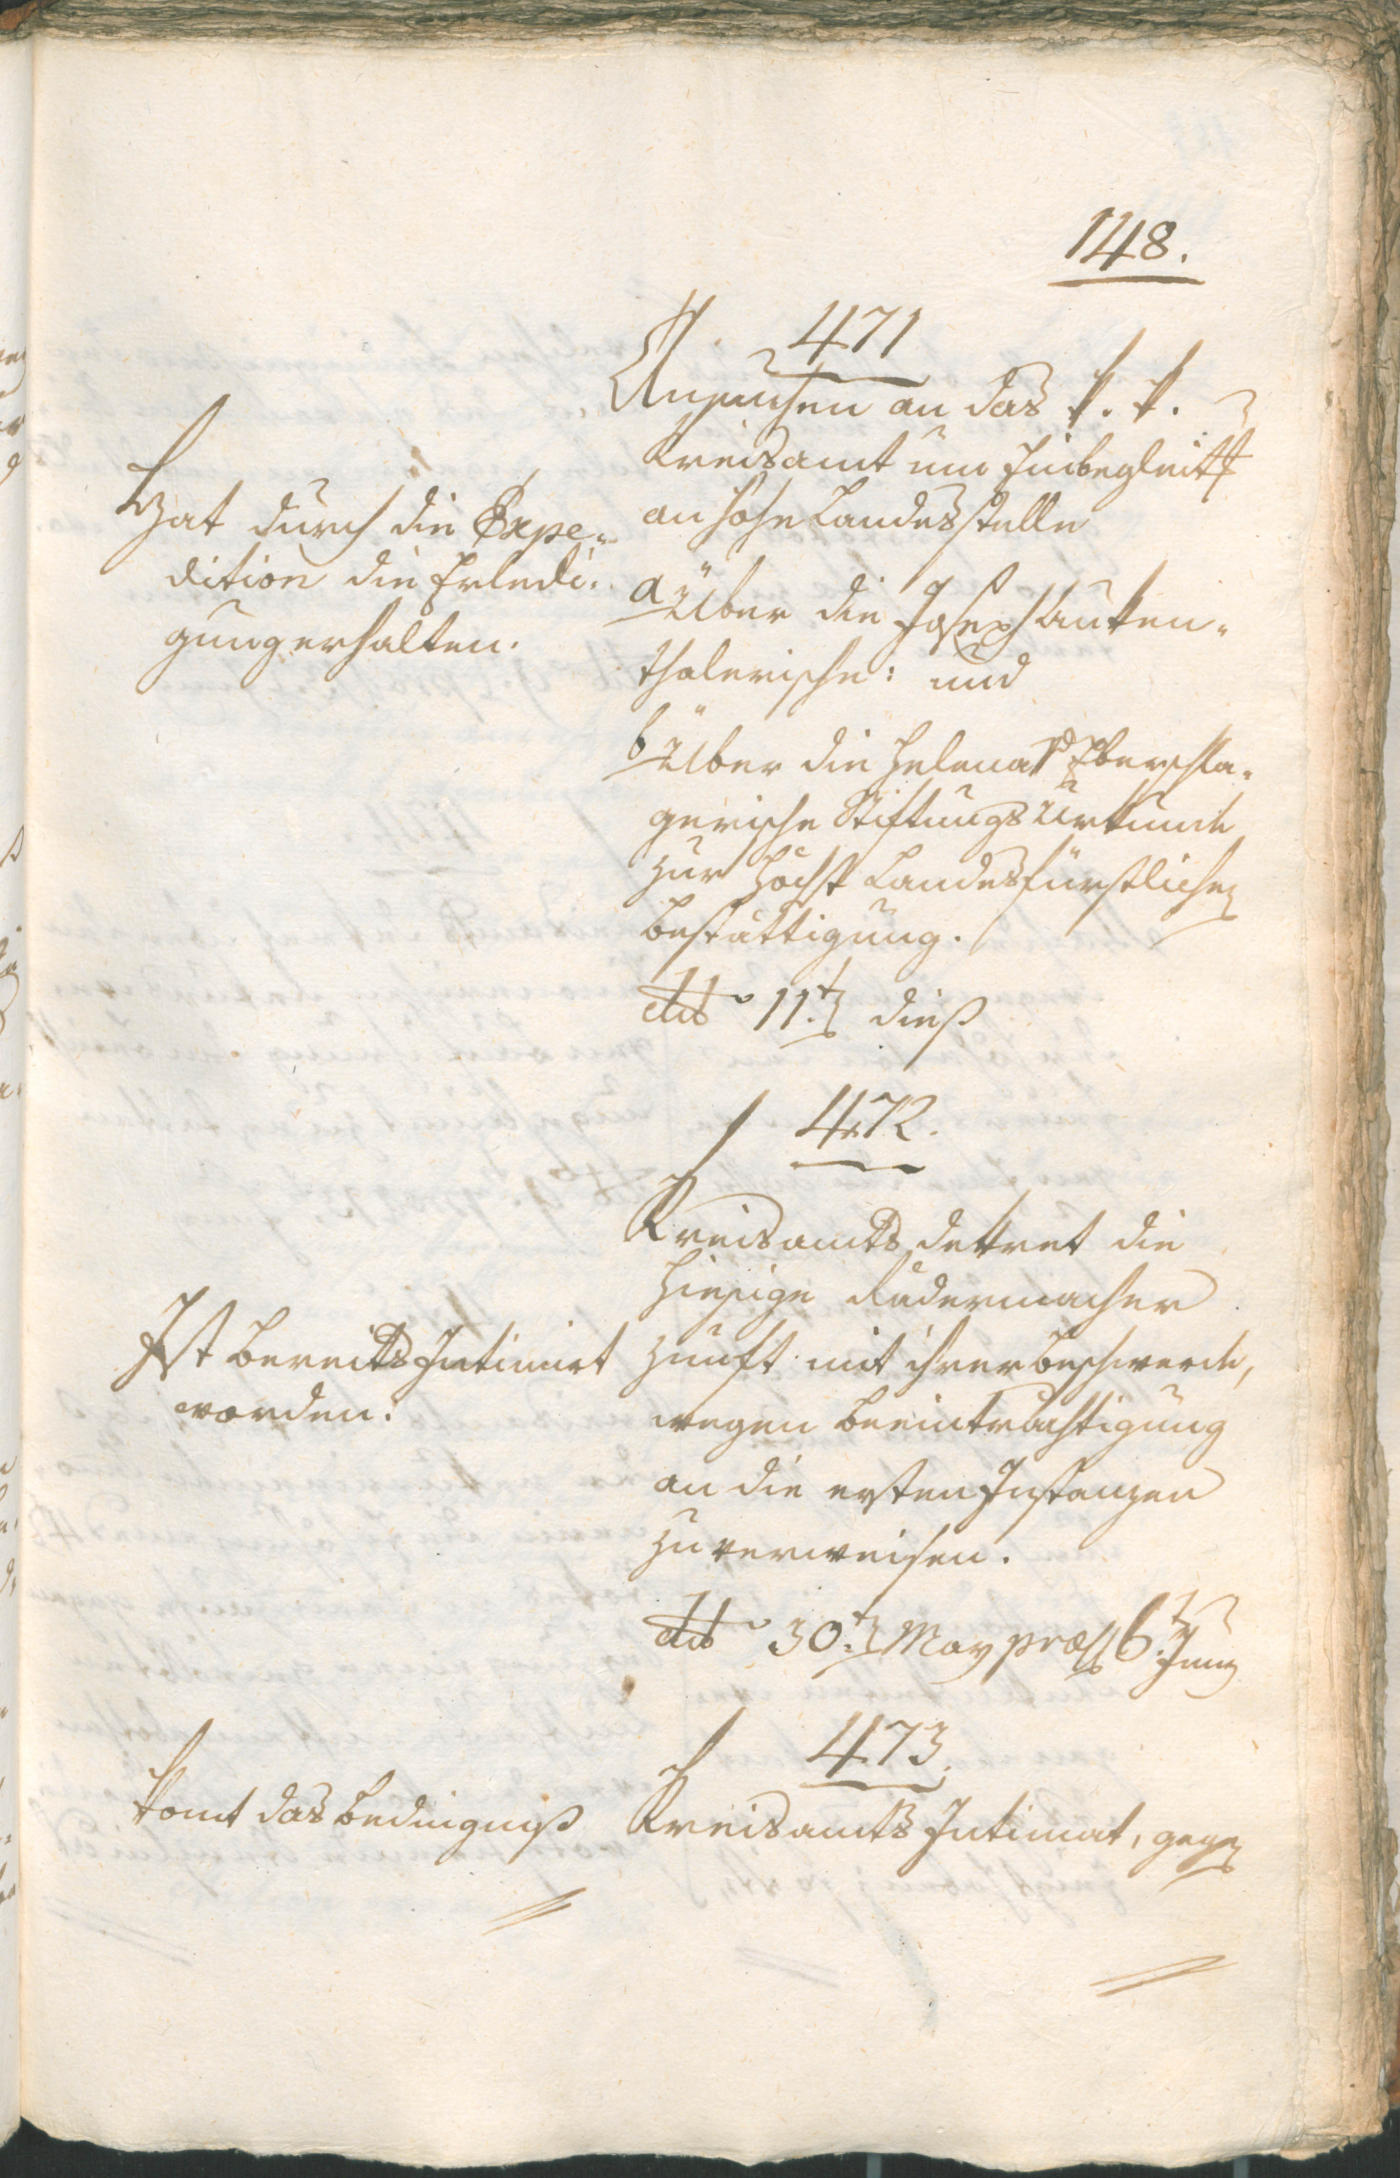 148.
471
Ansuchen an das k. k.
Kreisamt um Einbegleitt
an hohe Landesstelle
a Über die Joseph Auken-
thalerische: und
b Über die Helena Oberschla-
gerische Stiftungs Urkunde
zur Höchst Landesfürstlichen
Bestättigung.
dto 11.t dieß
Hat durch die Expe-
dition die Erledi-
gung erhalten.
472.
Kreisamts dekret die
hiesige Rädermacher
Zunft mit ihrer Beschwerde,
wegen Beeinträchtigung
an die ersten Instanzen
zu verweisen.
dto 30.t May præs 6.t Juny
Ist bereits Intimirt
worden:
473.
Kreisamts Intimat, gegen
Komt das Bedingniß